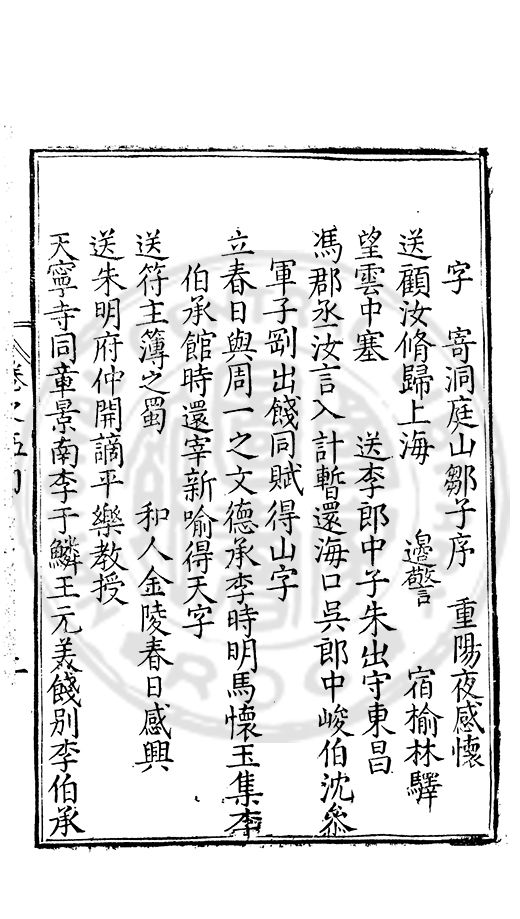 字　寄洞庭山鄒子序　重陽夜感懷
送顧汝脩歸上海　邊警　宿榆林驛
望雲中塞　送李郎中子朱出守東昌
馮郡丞汝言入計暫還海口吳郎中峻伯沈叅
軍子剛出餞同賦得山字
立春日與周一之文德承李時明馬懷玉集李
伯承館時還宰新喻得天字
送符主簿之蜀　和人金陵春日感興
送朱明府仲開謫平樂教授
天寧寺同章景南李于鱗王元美餞別李伯承